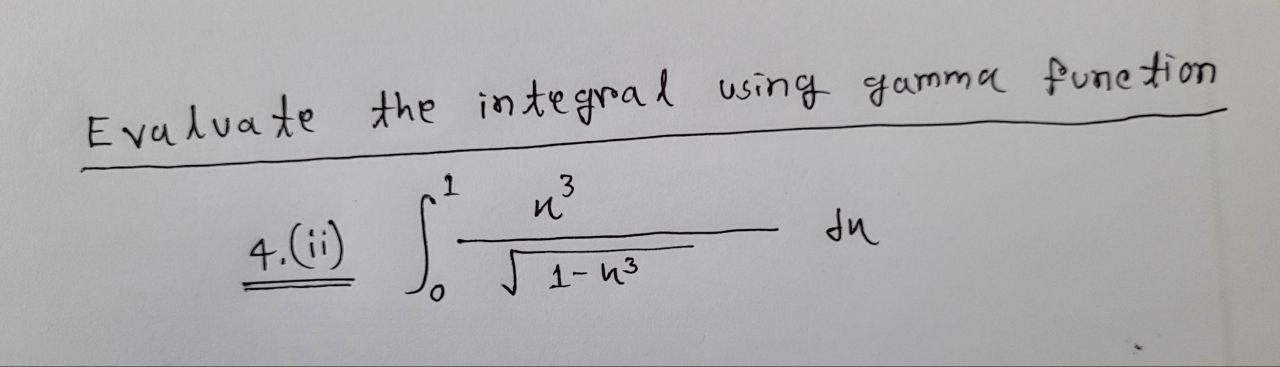 Evaluate the integral using gamma function
4.(ii) ∫₀¹ x³ / √(1-x³) dx